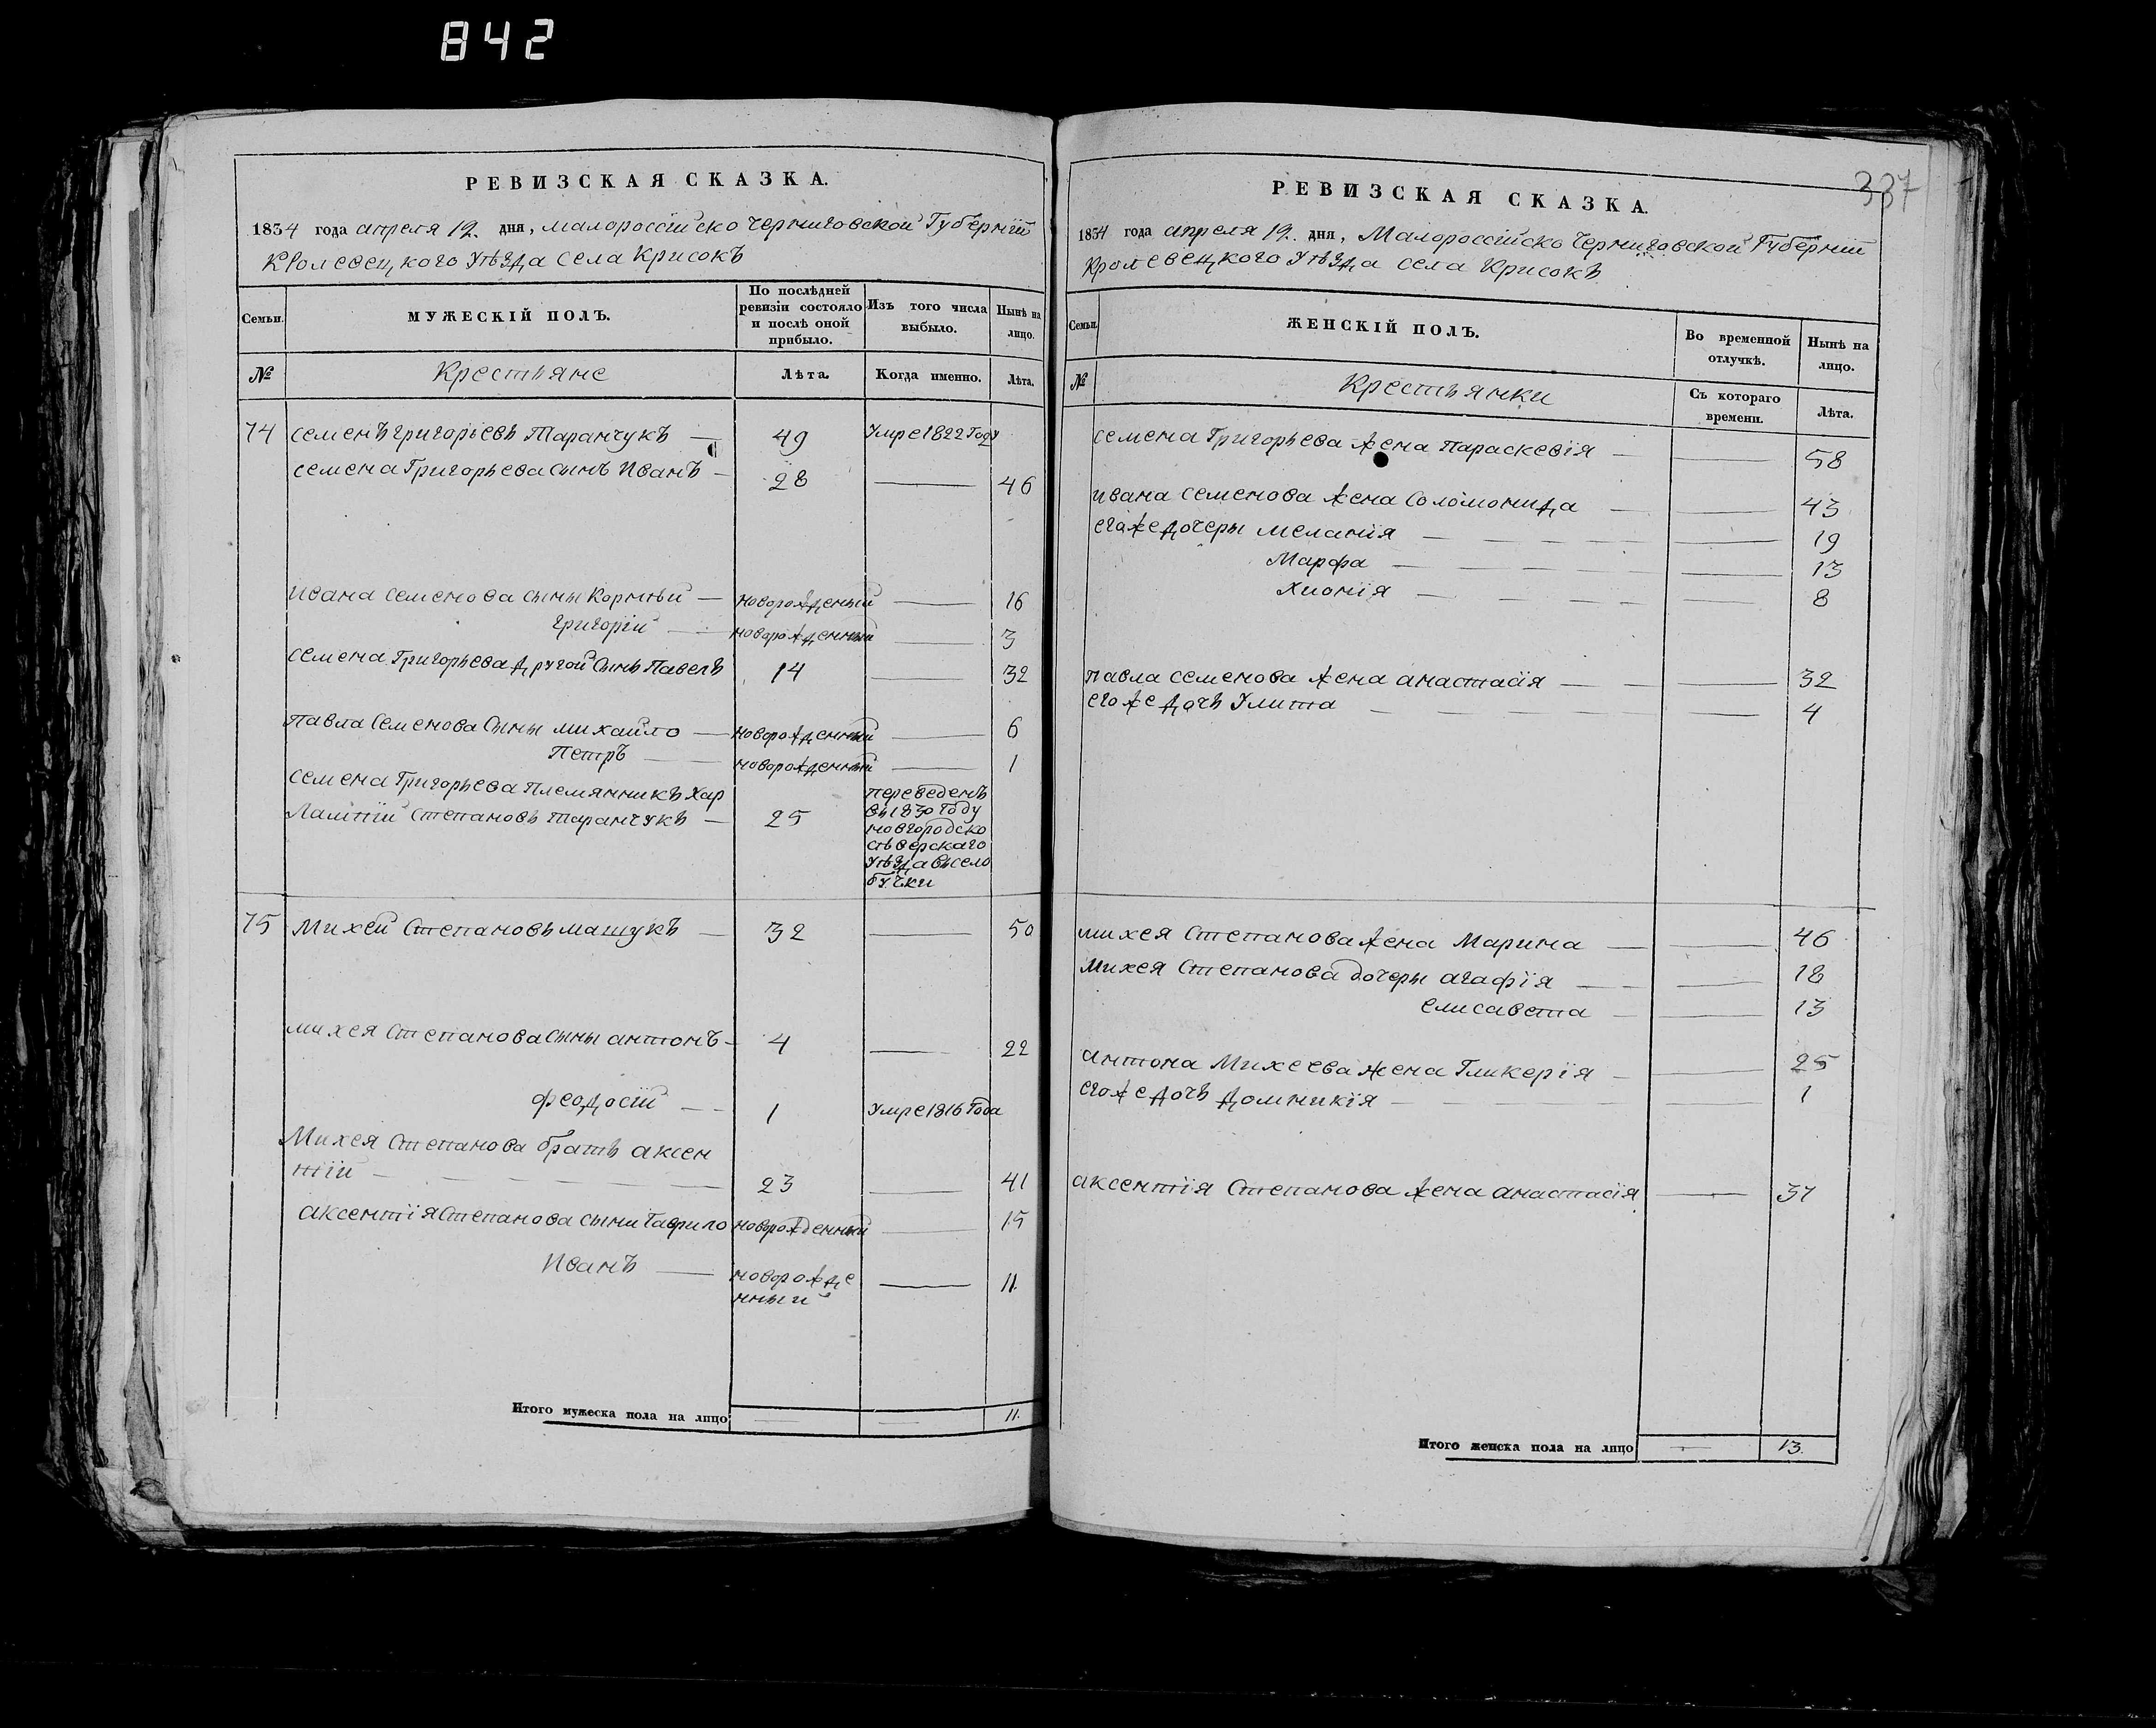 842
РЕВИЗСКАЯ СКАЗКА.
1834 года апреля 12. дня, малороссійско Черниговской Губерніи
Кролевецкого Уѣзда села Крисокъ
Семьи.
МУЖЕСКІЙ ПОЛЪ.
По послѣдней ревизіи состояло и послѣ оной прибыло.
Изъ того числа выбыло.
Нынѣ на лицо.
№ Крестьяне Лѣта. Когда именно. Лѣта.
74 семенъ григорьевъ Таранчукъ — 49 Умре 1822 Году
семена Григорьева сынъ Иванъ — 28 — 46
Ивана семенова сыны Корнѣй — новорожденный — 16
григорій — новорожденный — 3
семена Григорьева другой сынъ Павелъ 14 — 32
Павла семенова сыны михайло — новорожденный — 6
Петръ — новорожденный — 1
семена Григорьева Племянникъ Хар
Лампій степановъ таранчукъ — 25 переведенъ
въ 1830 году
новгородско
сѣверскаго
уѣзда въ село
бучки
75 Михей Степановъ машукъ — 32 — 50
михея степанова сыны антонъ — 4 — 22
феодосій — 1 Умре 1816 Года
Михея Степанова братъ аксен
тій — 23 — 41
аксентія Степанова сыны Гаврило новорожденный — 15
Иванъ — новорожде
нный — 11.
Итого мужеска пола на лицо — — 11.
337
РЕВИЗСКАЯ СКАЗКА.
1834 года апреля 12. дня, Малороссійско Черниговской Губерніи
Кролевецкого Уѣзда села Крисокъ
Семьи.
ЖЕНСКІЙ ПОЛЪ.
Во временной отлучкѣ.
Нынѣ на лицо.
№ Крестьянки Съ котораго времени. Лѣта.
семена Григорьева жена Параскевія — — 58
ивана семенова жена Соломонида — — 43
егоже дочеры меланія — — 19
Марфа — — 13
Хионія — — 8
павла семенова жена анастасія — — 32
егоже дочь Улита — — 4
михея степанова жена Марина — — 46
Михея Степанова дочеры агафія — — 18
елисавета — — 13
антона Михеева жена Гликерія — — 25
егоже дочь домникія — — 1
аксентія Степанова жена анастасія — 37
Итого женска пола на лицо — 13.